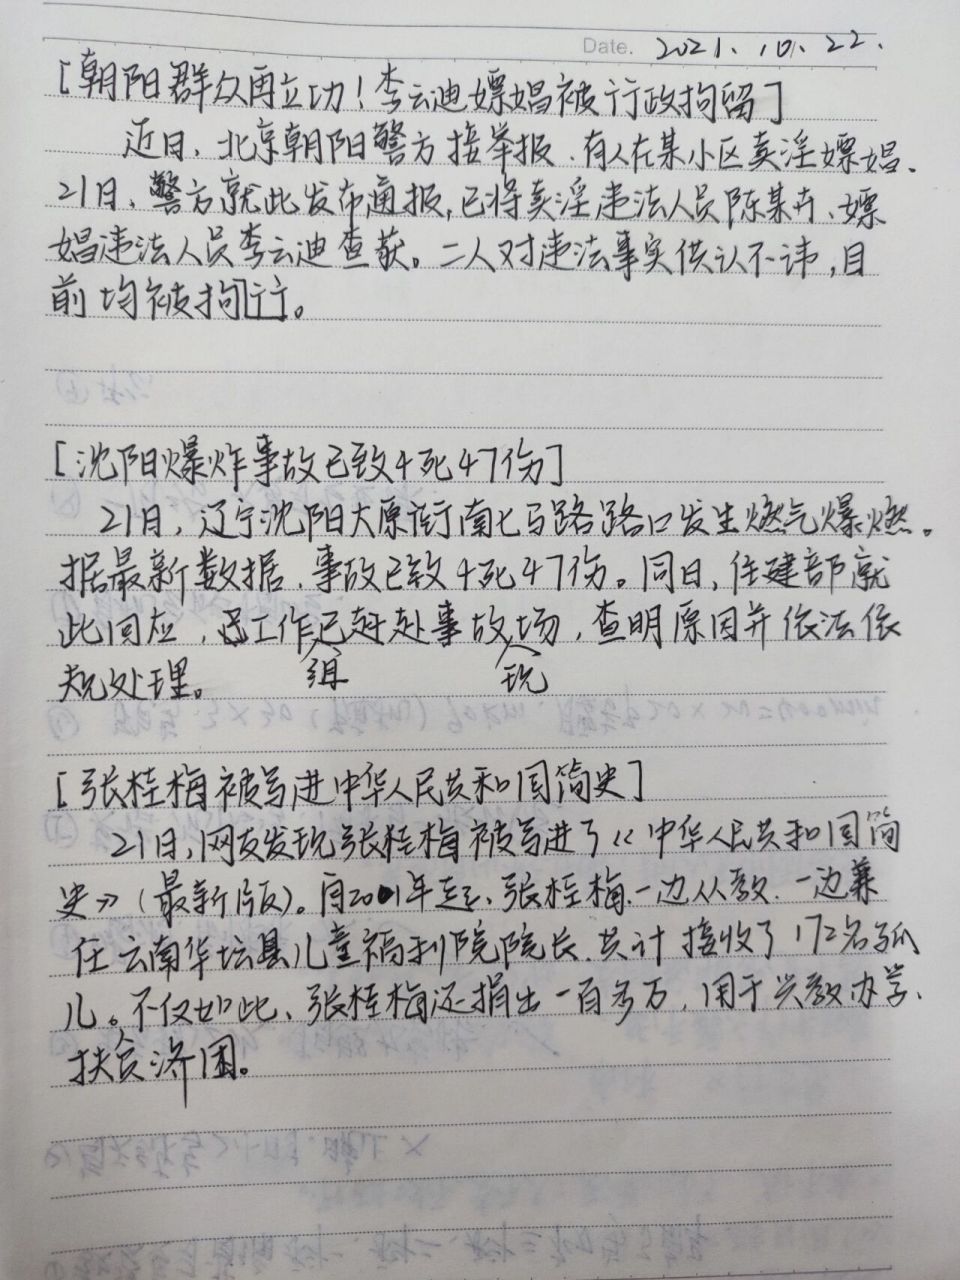 Date. 2021.10.22.
[朝阳群众再立功！李云迪嫖娼被行政拘留]
近日、北京朝阳警方接举报、有人在某小区卖淫嫖娼、
21日、警方就此发布通报,已将卖淫违法人员陈某卉、嫖
娼违法人员李云迪查获。二人对违法事实供认不讳,目
前均被拘行。
[沈阳爆炸事故已致4死47伤]
21日,辽宁沈阳太原街南七马路路口发生燃气爆燃。
据最新数据、事故已致4死47伤。同日,住建部就
此回应,工作组已赶赴事故现场,查明原因并依法依
规处理。
[张桂梅被写进中华人民共和国简史]
21日,网友发现张桂梅被写进了《中华人民共和国简
史》(最新版)。自2001年起、张桂梅一边从教、一边兼
任云南华坛县儿童福利院院长、共计接收了172名孤
儿。不仅如此、张桂梅还捐出一百多万,用于兴教办学、
扶贫济困。